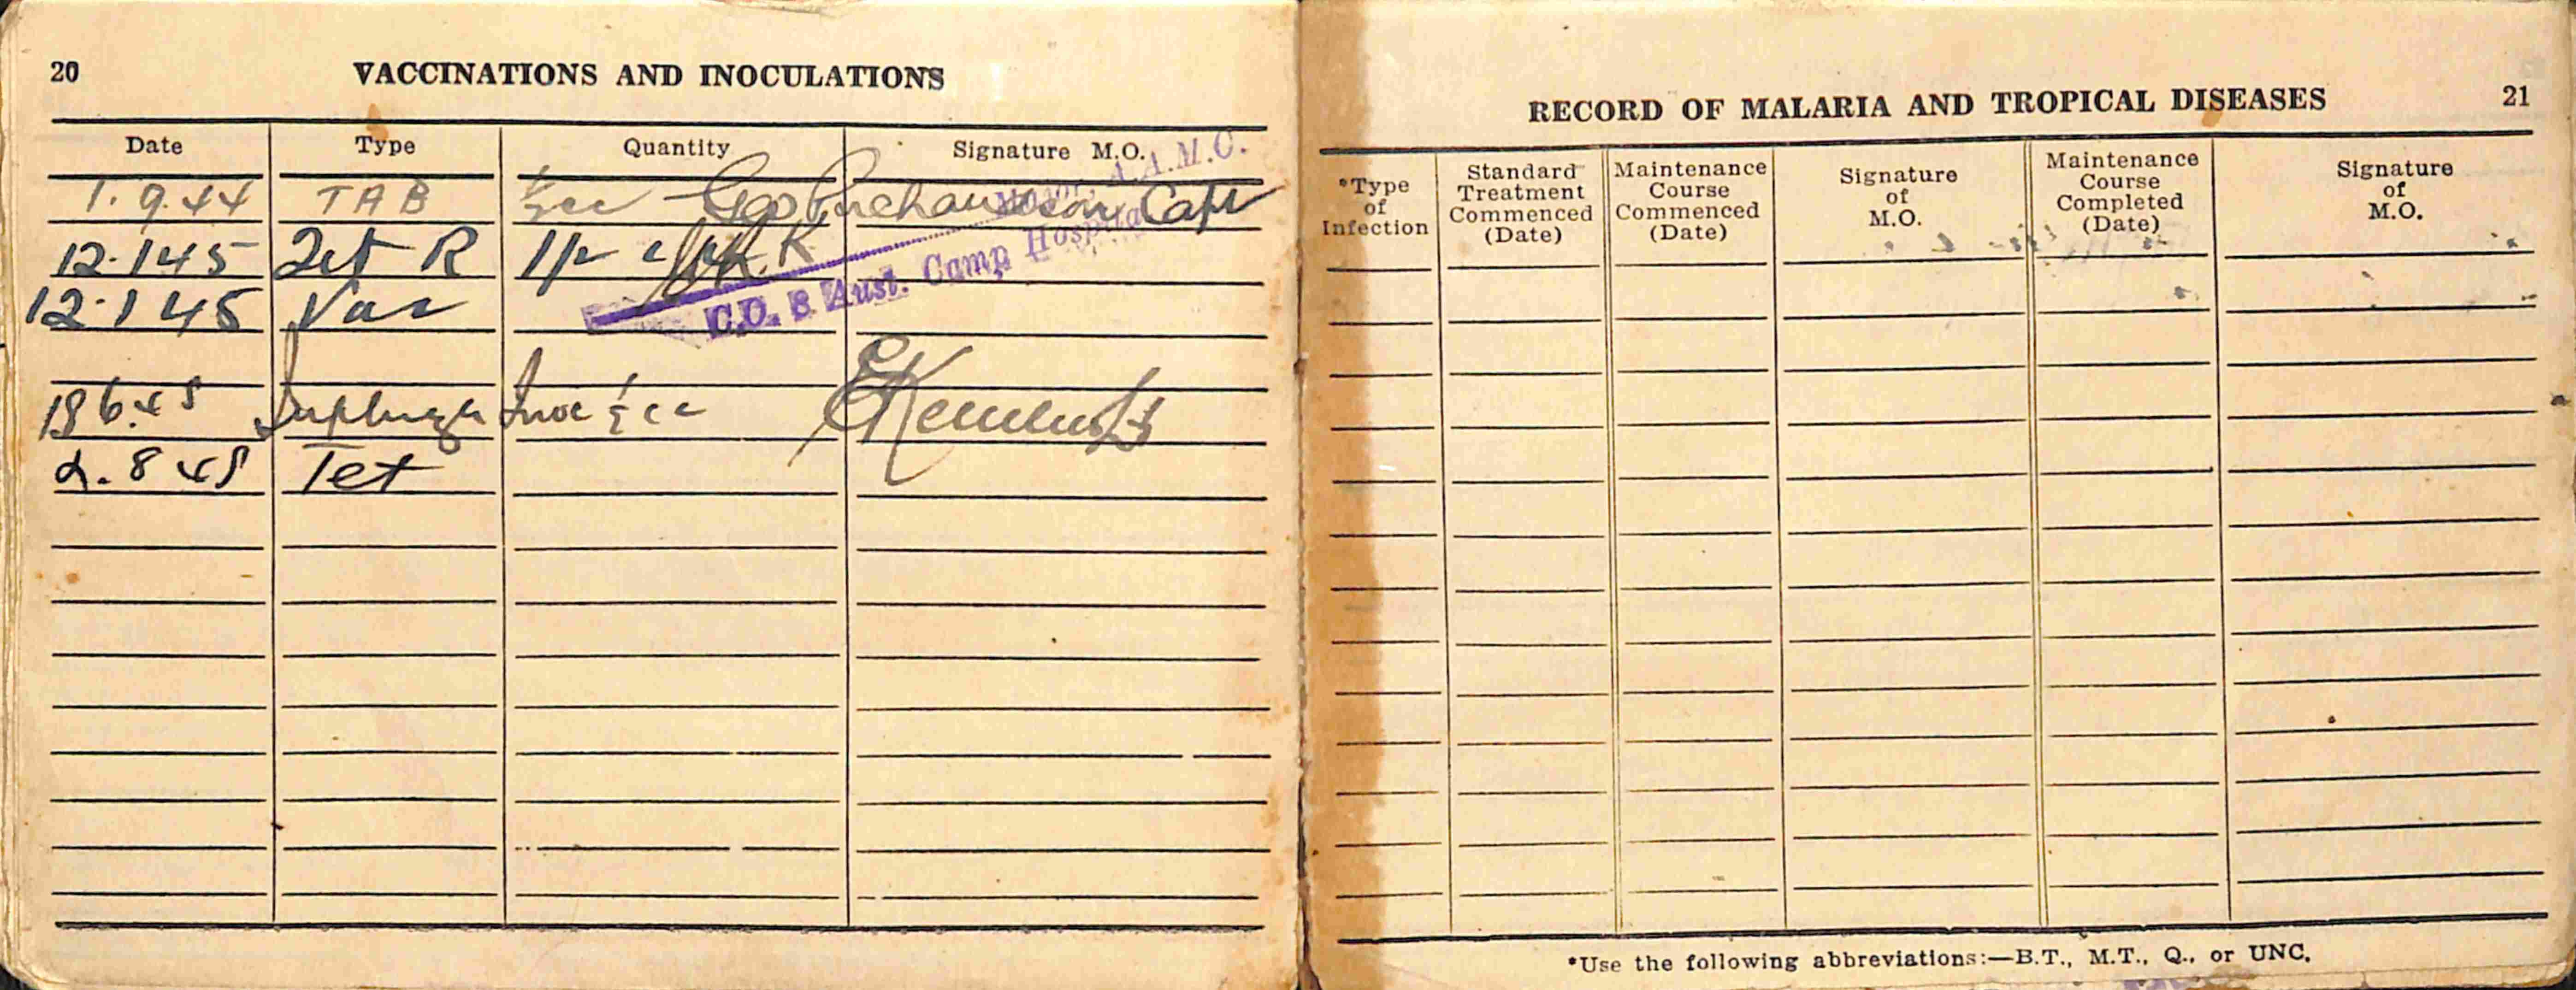 20
VACCINATIONS AND INOCULATIONS
Date Type Quantity Signature M.O.
1.9.44 TAB ½cc Geo Capt
Major, A.A.M.C.
12.1.45 Tet R 1/2 c
C.O. 8 Aust. Camp Hospital
12.1.45 Vac
Inoc ½cc
2.8.45 Tet
RECORD OF MALARIA AND TROPICAL DISEASES
21
*Type of Infection
Standard Treatment Commenced (Date)
Maintenance Course Commenced (Date)
Signature of M.O.
Maintenance Course Completed (Date)
Signature of M.O.
*Use the following abbreviations:—B.T., M.T., Q., or UNC.